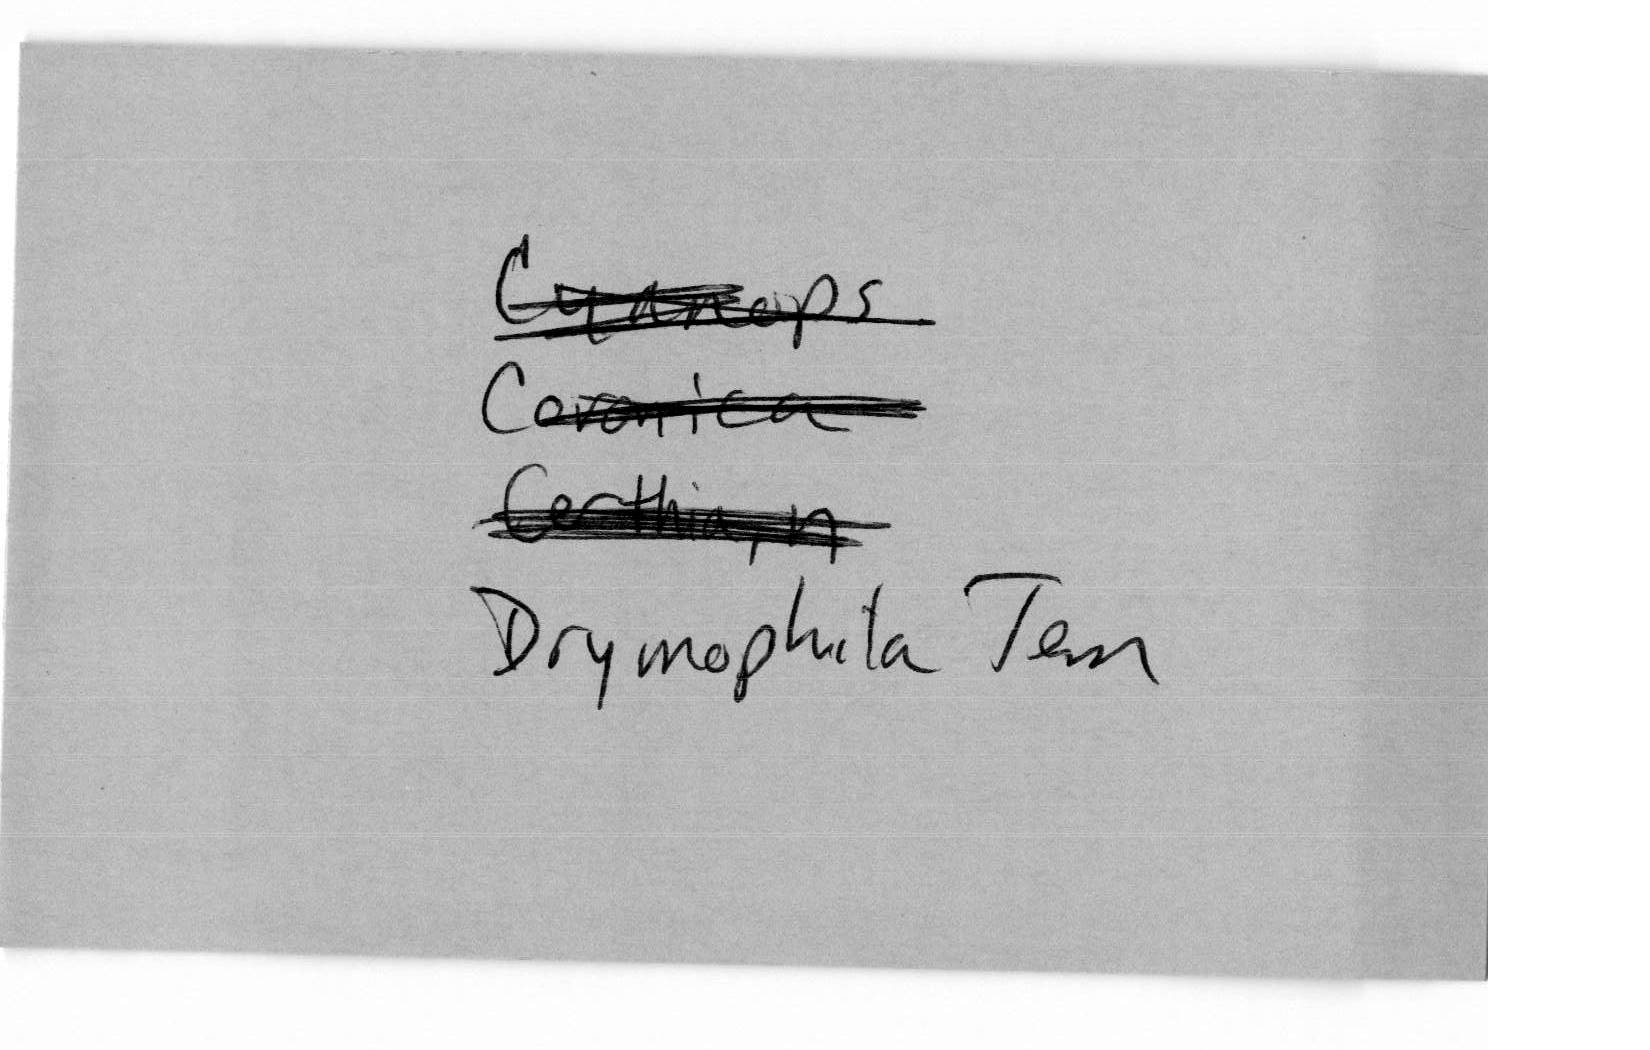 Cyaneops
Coronica
Certhia, n
Drymophila Tem